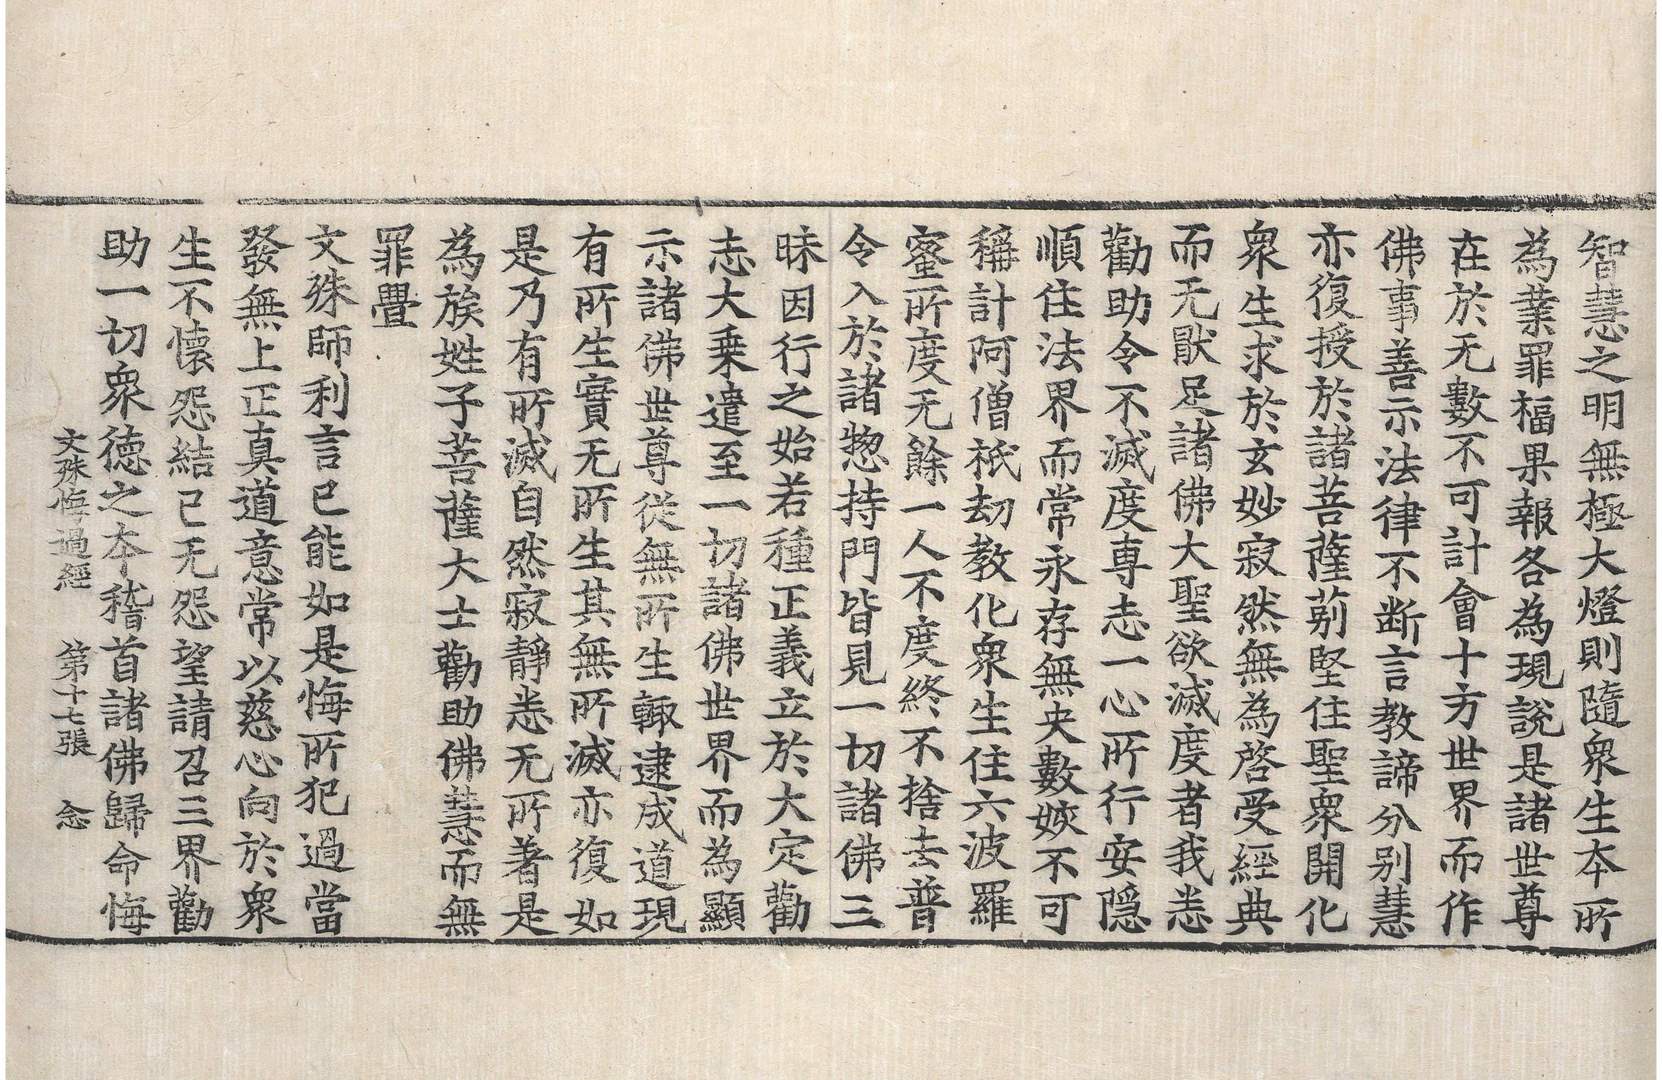 智慧之明無極大燈則隨衆生本所
為業罪福果報各為現說是諸世尊
在於无數不可計會十方世界而作
佛事善示法律不斷言教諦分別慧
亦復授於諸菩薩莂堅住聖衆開化
衆生求於玄妙寂然無為啓受經典
而无猒足諸佛大聖欲滅度者我恙
勸助令不滅度專志一心所行安隱
順住法界而常永存無央數姟不可
稱計阿僧祇劫教化衆生住六波羅
蜜所度无餘一人不度終不捨去普
令入於諸惣持門皆見一切諸佛三
昧因行之始若種正義立於大定勸
志大乗遣至一切諸佛世界而為顯
示諸佛世尊從無所生輙逮成道現
有所生實无所生其無所滅亦復如
是乃有所滅自然寂靜恙无所著是
為族姓子菩薩大士勸助佛慧而無
罪舋
文殊師利言已能如是悔所犯過當
發無上正真道意常以慈心向於衆
生不懷怨結已无怨望請召三界勸
助一切衆德之本稽首諸佛歸命悔
文殊悔過經 第十七張 念